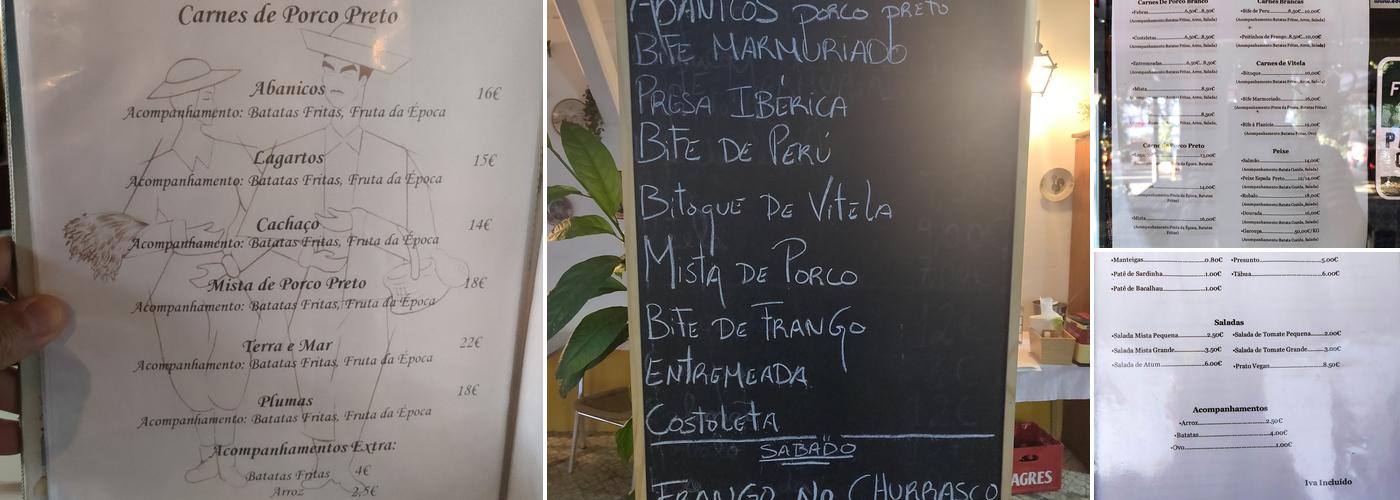 Carnes de Porco Preto
Abanicos 16€
Acompanhamento: Batatas Fritas, Fruta da Época
Lagartos 15€
Acompanhamento: Batatas Fritas, Fruta da Época
Cachaço 14€
Acompanhamento: Batatas Fritas, Fruta da Época
Mista de Porco Preto 18€
Acompanhamento: Batatas Fritas, Fruta da Época
Terra e Mar 22€
Acompanhamento: Batatas Fritas, Fruta da Época
Plumas 18€
Acompanhamento: Batatas Fritas, Fruta da Época
Acompanhamentos Extra:
Batatas Fritas 4€
Arroz 2,5€
ABANICOS PORCO PRETO
BIFE MARMURIADO
PRESA IBÉRICA
BIFE DE PERÚ
BITOQUE DE VITELA
MISTA DE PORCO
BIFE DE FRANGO
ENTREMEADA
COSTOLETA
SABADO
FRANGO NO CHURRASCO
AGRES
Carnes De Porco Branco
•Febras 6,50€..8,50€
(Acompanhamento Batatas Fritas, Arroz, Salada)
•Costoletas 6,50€..8,50€
(Acompanhamento Batatas Fritas, Arroz, Salada)
•Entremeadas 6,50€..8,50€
(Acompanhamento Batatas Fritas, Arroz, Salada)
•Mista 8,50€
8,50€
Porco Preto
13,00€
14,00€
•Mista 16,00€
Carnes Brancas
•Bife de Peru 8,50€..10,00€
(Acompanhamento Batatas Fritas, Arroz, Salada)
•Peitinhos de Frango 8,50€..10,00€
(Acompanhamento Batatas Fritas, Arroz, Salada)
Carnes de Vitela
•Bitoque 10,00€
(Acompanhamento Batatas Fritas, Arroz, Salada)
•Bife Marmoriado 16,00€
•Bife à Planície 19,00€
(Acompanhamento Batatas Fritas, Ovo)
Peixe
•Salmão 14,00€
(Acompanhamento Batata Cozida, Salada)
•Peixe Espada Preto 12/14,00€
(Acompanhamento Batata Cozida, Salada)
•Robalo 18,00€
(Acompanhamento Batata Cozida, Salada)
•Dourada 16,00€
(Acompanhamento Batata Cozida, Salada)
•Garoupa 50,00€/KG
(Acompanhamento Batata Cozida, Salada)
•Manteigas 0.80€
•Patê de Sardinha 1.00€
•Patê de Bacalhau 1.00€
•Presunto 5.00€
•Tábua 6.00€
Saladas
•Salada Mista Pequena 2.50€
•Salada Mista Grande 3.50€
•Salada de Atum 6.00€
•Salada de Tomate Pequena 2.00€
•Salada de Tomate Grande 3.00€
•Prato Vegan 8.50€
Acompanhamentos
•Arroz 2.50€
•Batatas 4.00€
•Ovo 1.00€
Iva Incluido